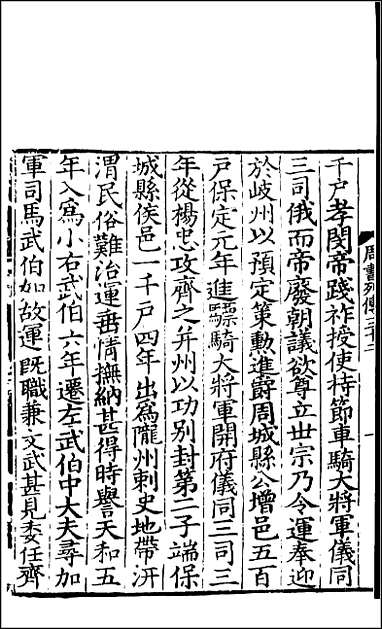 周書列傳三十二
千戶孝閔帝踐祚授使持節車騎大將軍儀同
三司俄而帝廢朝議欲尊立世宗乃令運奉迎
於岐州以預定策勲進爵周城縣公增邑五百
戶保定元年進驃騎大將軍開府儀同三司三
年從楊忠攻齊之并州以功別封第二子端保
城縣侯邑一千戶四年出爲隴州刺史地帶汧
渭民俗難治運垂情撫納甚得時譽天和五
年入爲小右武伯六年遷左武伯中大夫尋加
軍司馬武伯如故運旣職兼文武甚見委任齊